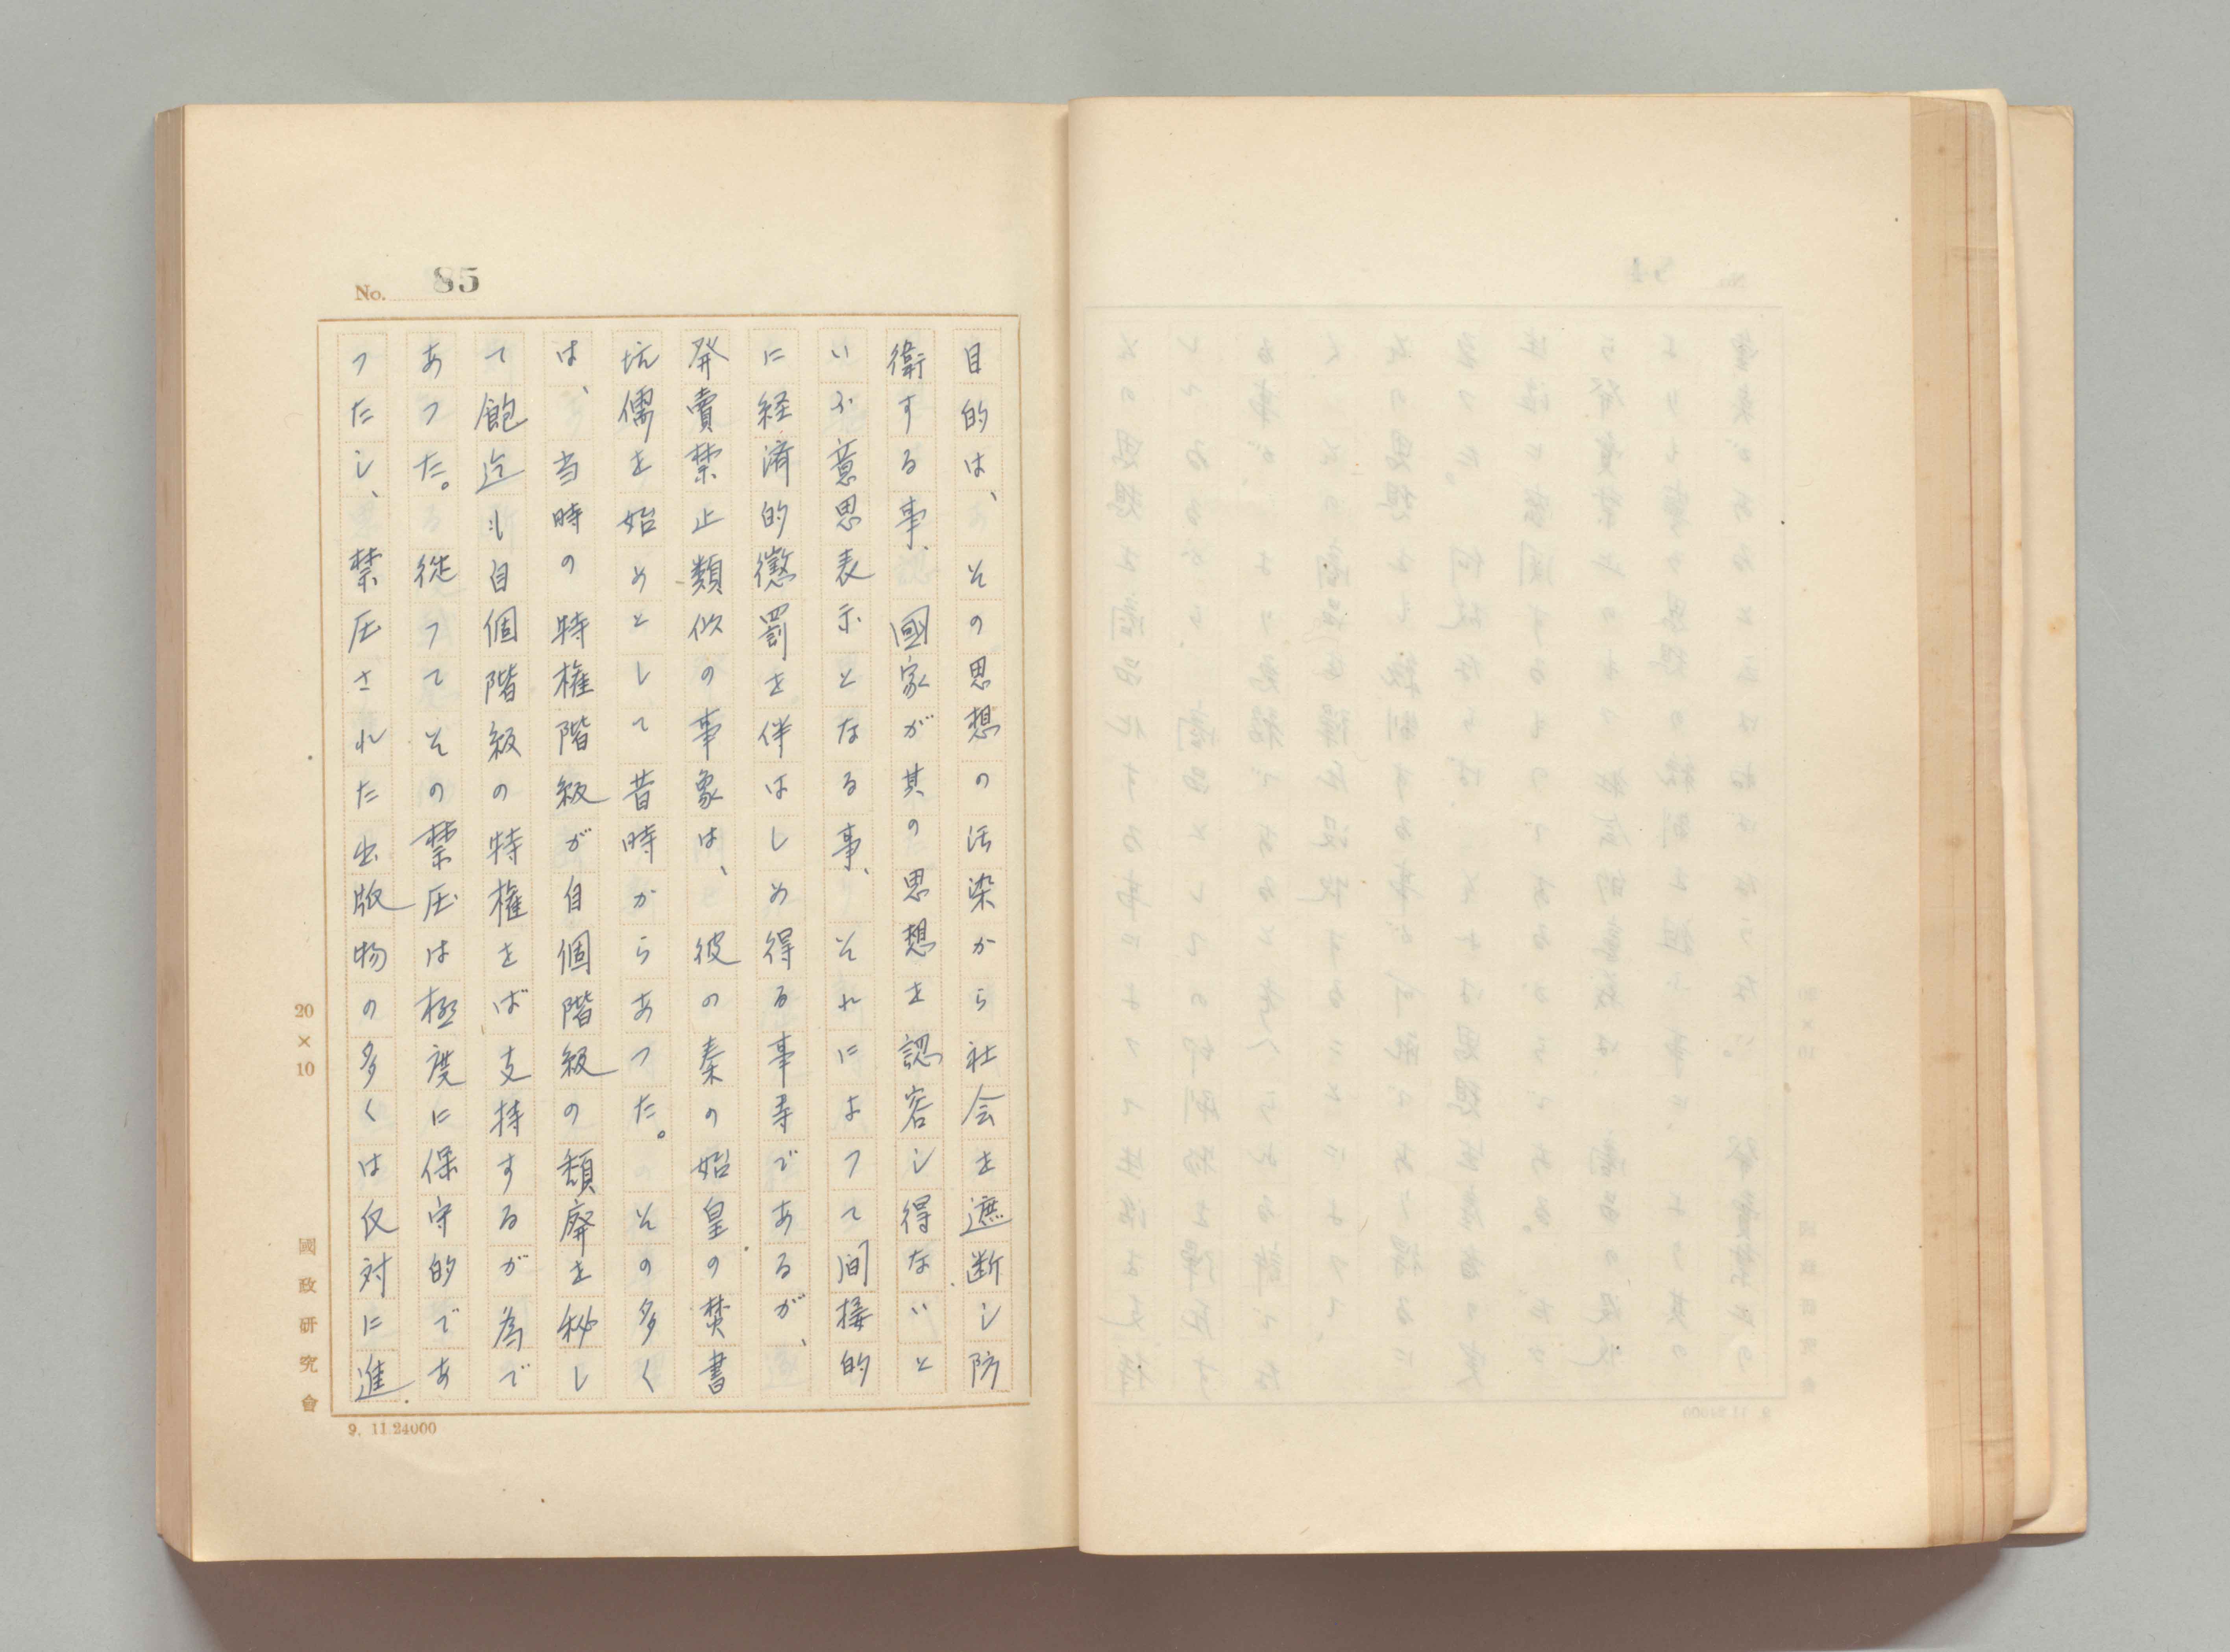 No. 85
目的は、その思想の汚染から社会を遮断し防
衛する事、國家が其の思想を認容し得ないと
いふ意思表示となる事、それによつて間接的
に経済的懲罰を伴はしめ得る事等であるが、
発賣禁止類似の事象は、彼の秦の始皇の焚書
坑儒を始めとして昔時からあつた。その多く
は、当時の特権階級が自個階級の頽廃を秘し
て飽迄も自個階級の特権をば支持するが為で
あつた。従つてその禁圧は極度に保守的であ
つたし、禁圧された出版物の多くは反対に進
20×10
國政研究會
9. 11 24000